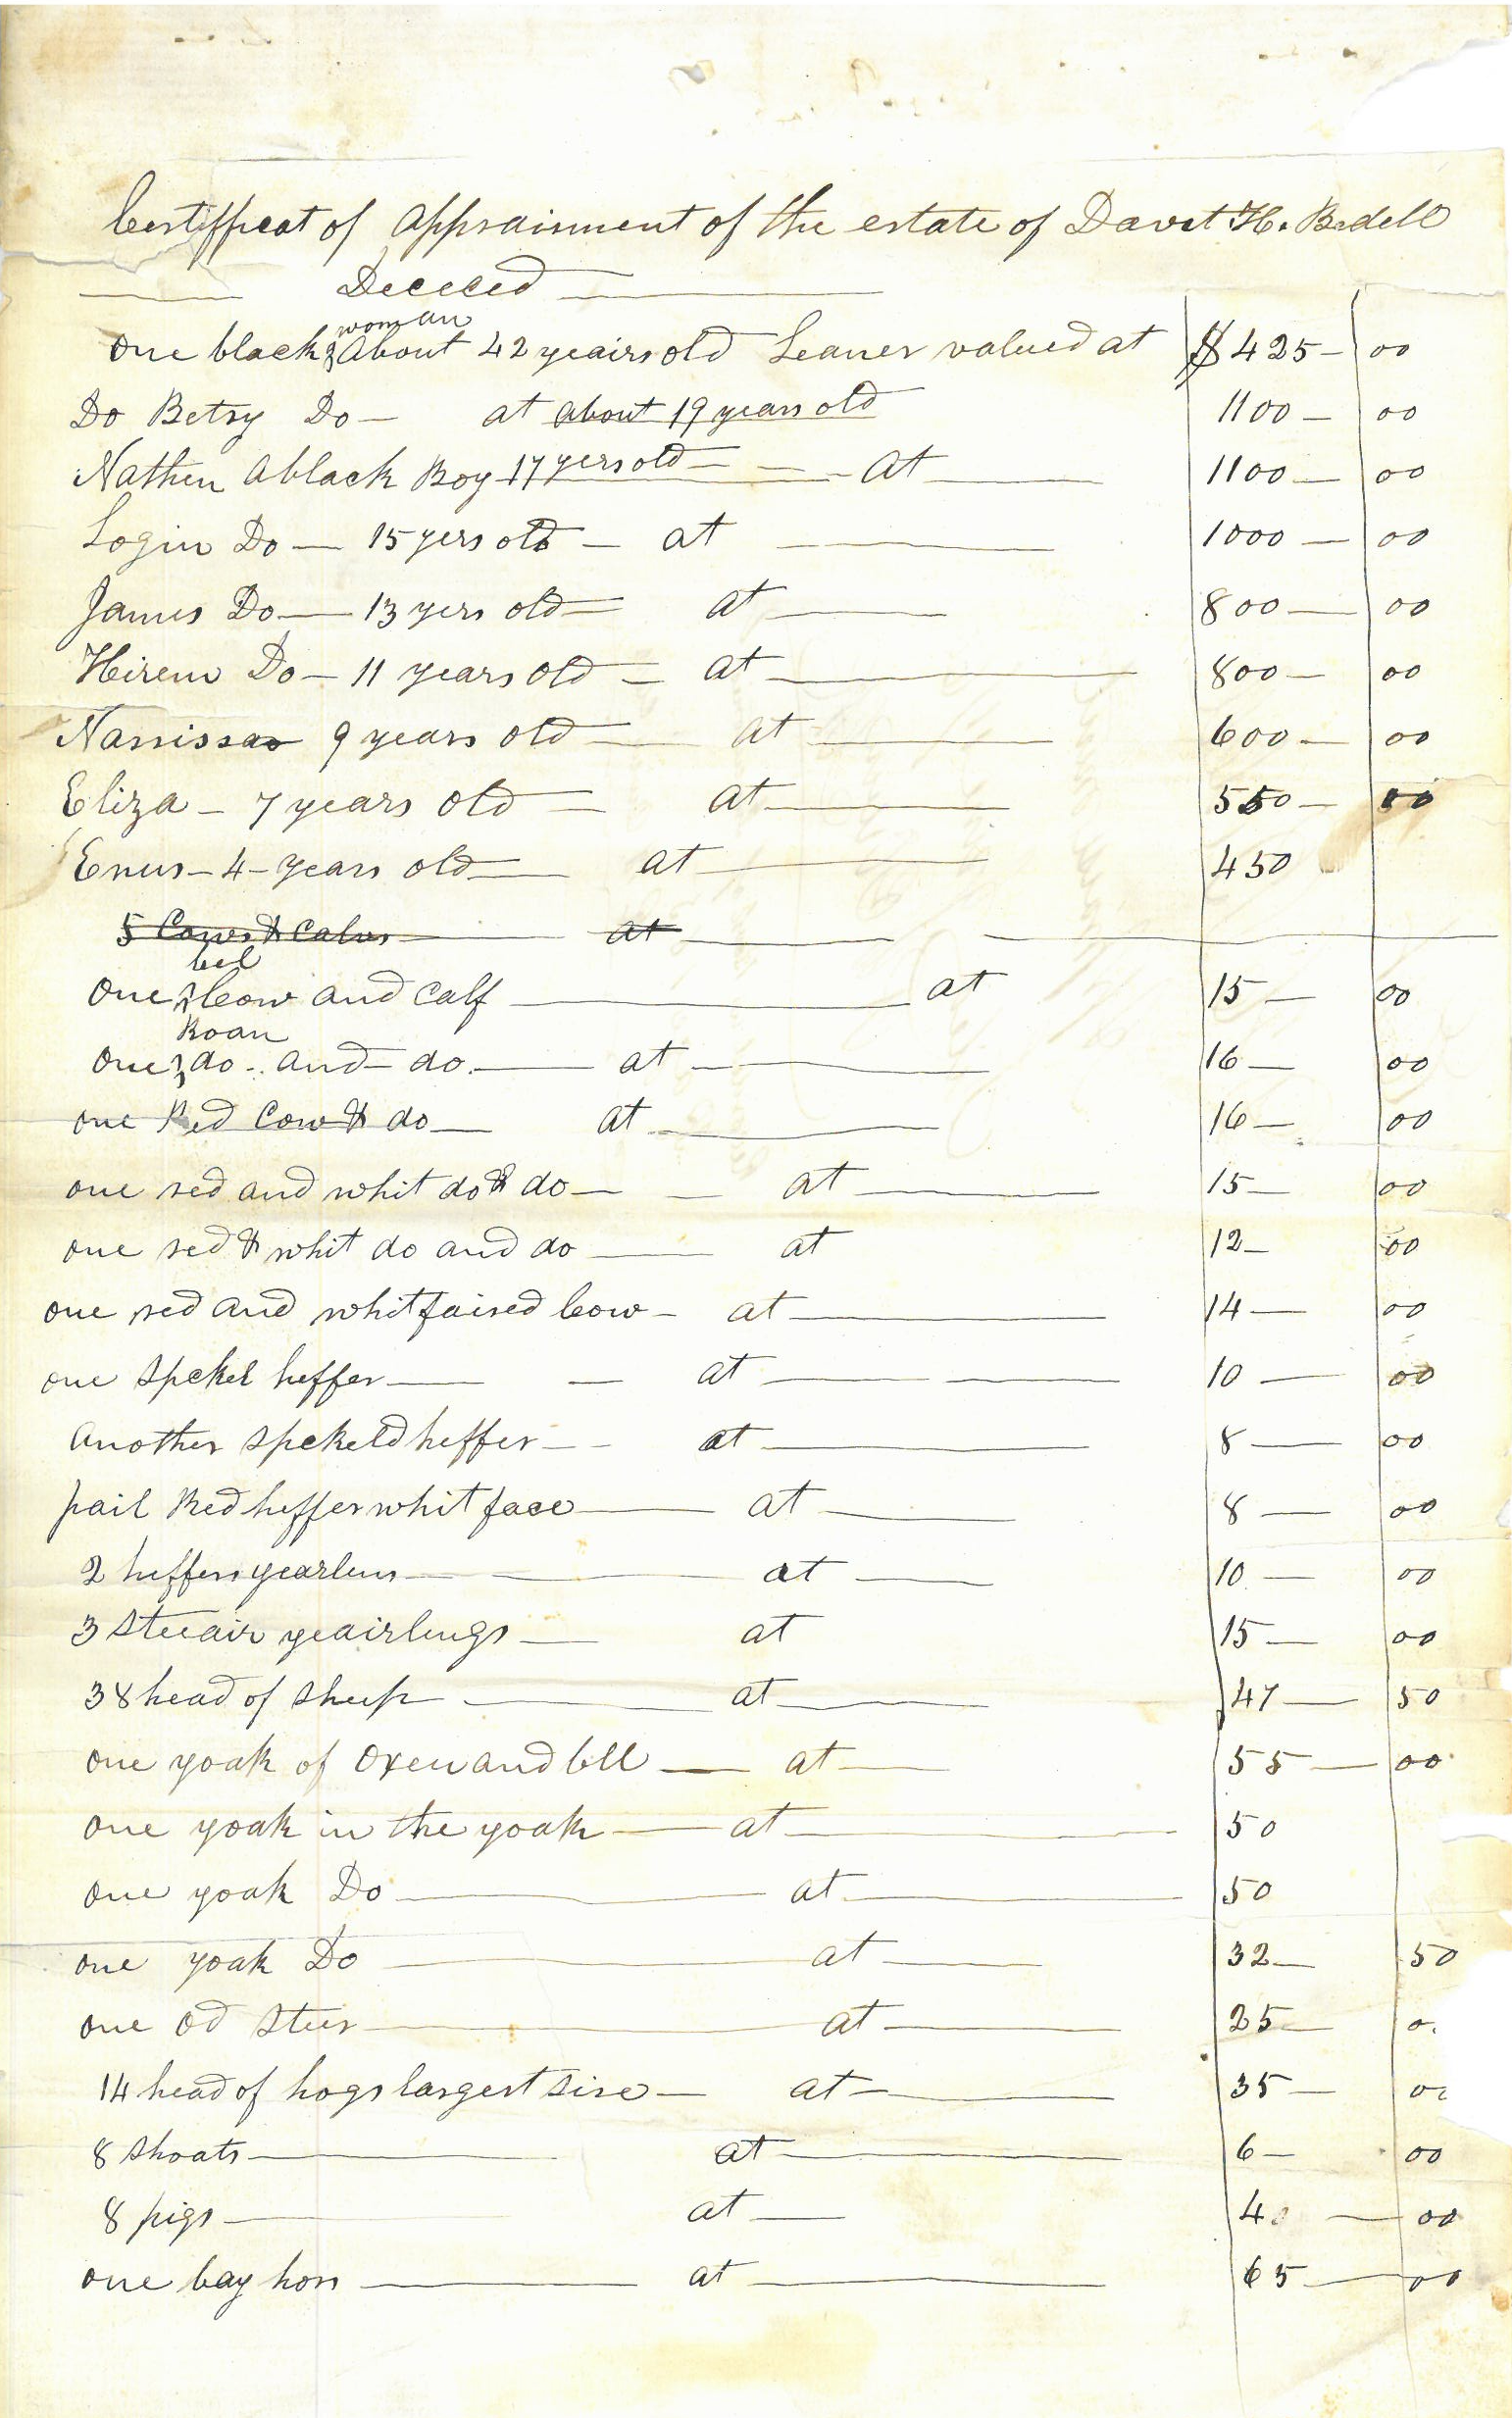 Certifficat of appraisment of the estate of Davet H. Bedell
Dececed
woman
One black about 42 yeairs old Leaner valued at $ 425 - 00
Do Betsy Do - at about 19 years old 1100 - 00
Nathen a black Boy 17 yers old - at 1100 - 00
Login Do - 15 yers old - at 1000 - 00
James Do - 13 yers old at 800 - 00
Hirem Do - 11 years old - at 800 - 00
Narrissa 9 years old at 600 - 00
Eliza - 7 years old at 550 - 00
Enus - 4 - years old at 450
5 Cows & Calvs at
bel
One Cow and Calf at 15 - 00
Roan
One do - and - do at 16 - 00
one Red Cow & do at 16 - 00
one red and whit do & do - at 15 - 00
one red & whit do and do at 12 - 00
one red and whit faised Cow - at 14 - 00
one Spekel heffer at 10 - 00
Another Spekeld heffer at 8 - 00
pail Red heffer whit face at 8 - 00
2 heffers yearlens at 10 - 00
3 Steair yeairlengs at 15 - 00
38 head of Sheep at 47 - 50
one yoak of Oxen and bell at 55 - 00
one yoak in the yoak at 50
one yoak Do at 50
one yoak Do at 32 - 50
one od Steer at 25 - 0
14 head of hogs largest sise - at 35 - 0
8 Shoats at 6 - 00
8 pigs at 4 - 00
one bay hors at 65 - 00